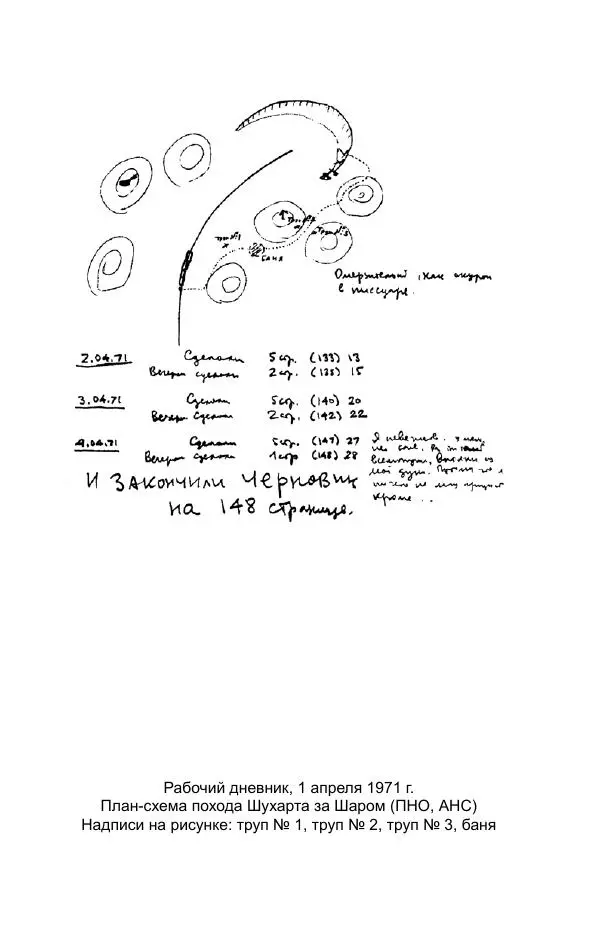 труп №1
труп №2
труп №3
баня
Омерзительный, как окурок
в писсуаре.
2.04.71 Сделали 5 стр. (133) 13
Вечером сделали 2 стр. (135) 15
3.04.71 Сделали 5 стр. (140) 20
Вечером сделали 2 стр. (142) 22
4.04.71 Сделали 5 стр. (147) 27
Вечером сделали 1 стр (148) 28
Я
кроме...
И ЗАКОНЧИЛИ ЧЕРНОВИК
на 148 странице.
Рабочий дневник, 1 апреля 1971 г.
План-схема похода Шухарта за Шаром (ПНО, АНС)
Надписи на рисунке: труп № 1, труп № 2, труп № 3, баня